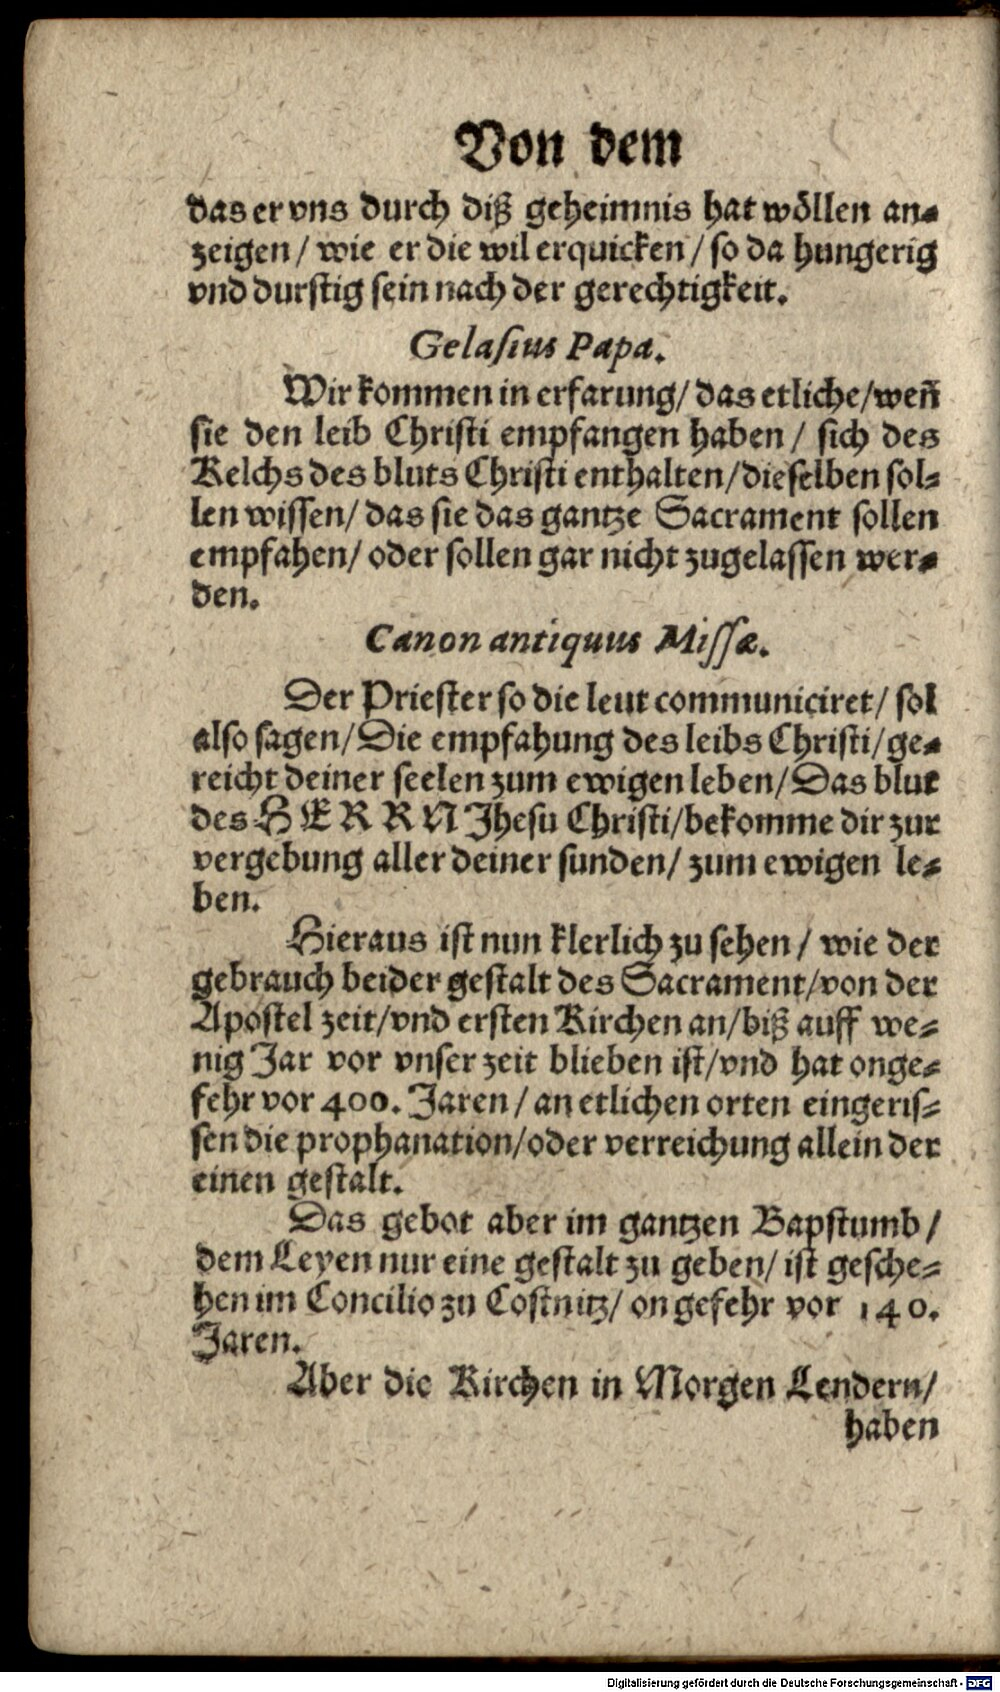 Von dem
das er vns durch diß geheimnis hat wöllen an-
zeigen / wie er die wil erquicken / so da hungerig
vnd durstig sein nach der gerechtigkeit.
Gelasius Papa.
Wir kommen in erfarung / das etliche / weñ
sie den leib Christi empfangen haben / sich des
Kelchs des bluts Christi enthalten / dieselben sol-
len wissen / das sie das gantze Sacrament sollen
empfahen / oder sollen gar nicht zugelassen wer-
den.
Canon antiquus Missæ.
Der Priester so die leut communiciret / sol
also sagen / Die empfahung des leibs Christi / ge-
reicht deiner seelen zum ewigen leben / Das blut
des HERRN Jhesu Christi / bekomme dir zur
vergebung aller deiner sunden / zum ewigen le-
ben.
Hieraus ist nun klerlich zu sehen / wie der
gebrauch beider gestalt des Sacrament / von der
Apostel zeit / vnd ersten Kirchen an / biß auff we-
nig Jar vor vnser zeit blieben ist / vnd hat onge-
fehr vor 400. Jaren / an etlichen orten eingeris-
sen die prophanation / oder verreichung allein der
einen gestalt.
Das gebot aber im gantzen Bapstumb /
dem Leyen nur eine gestalt zu geben / ist gesche-
hen im Concilio zu Costnitz / on gefehr vor 140.
Jaren.
Aber die Kirchen in Morgen Lendern /
haben
Digitalisierung gefördert durch die Deutsche Forschungsgemeinschaft - DFG